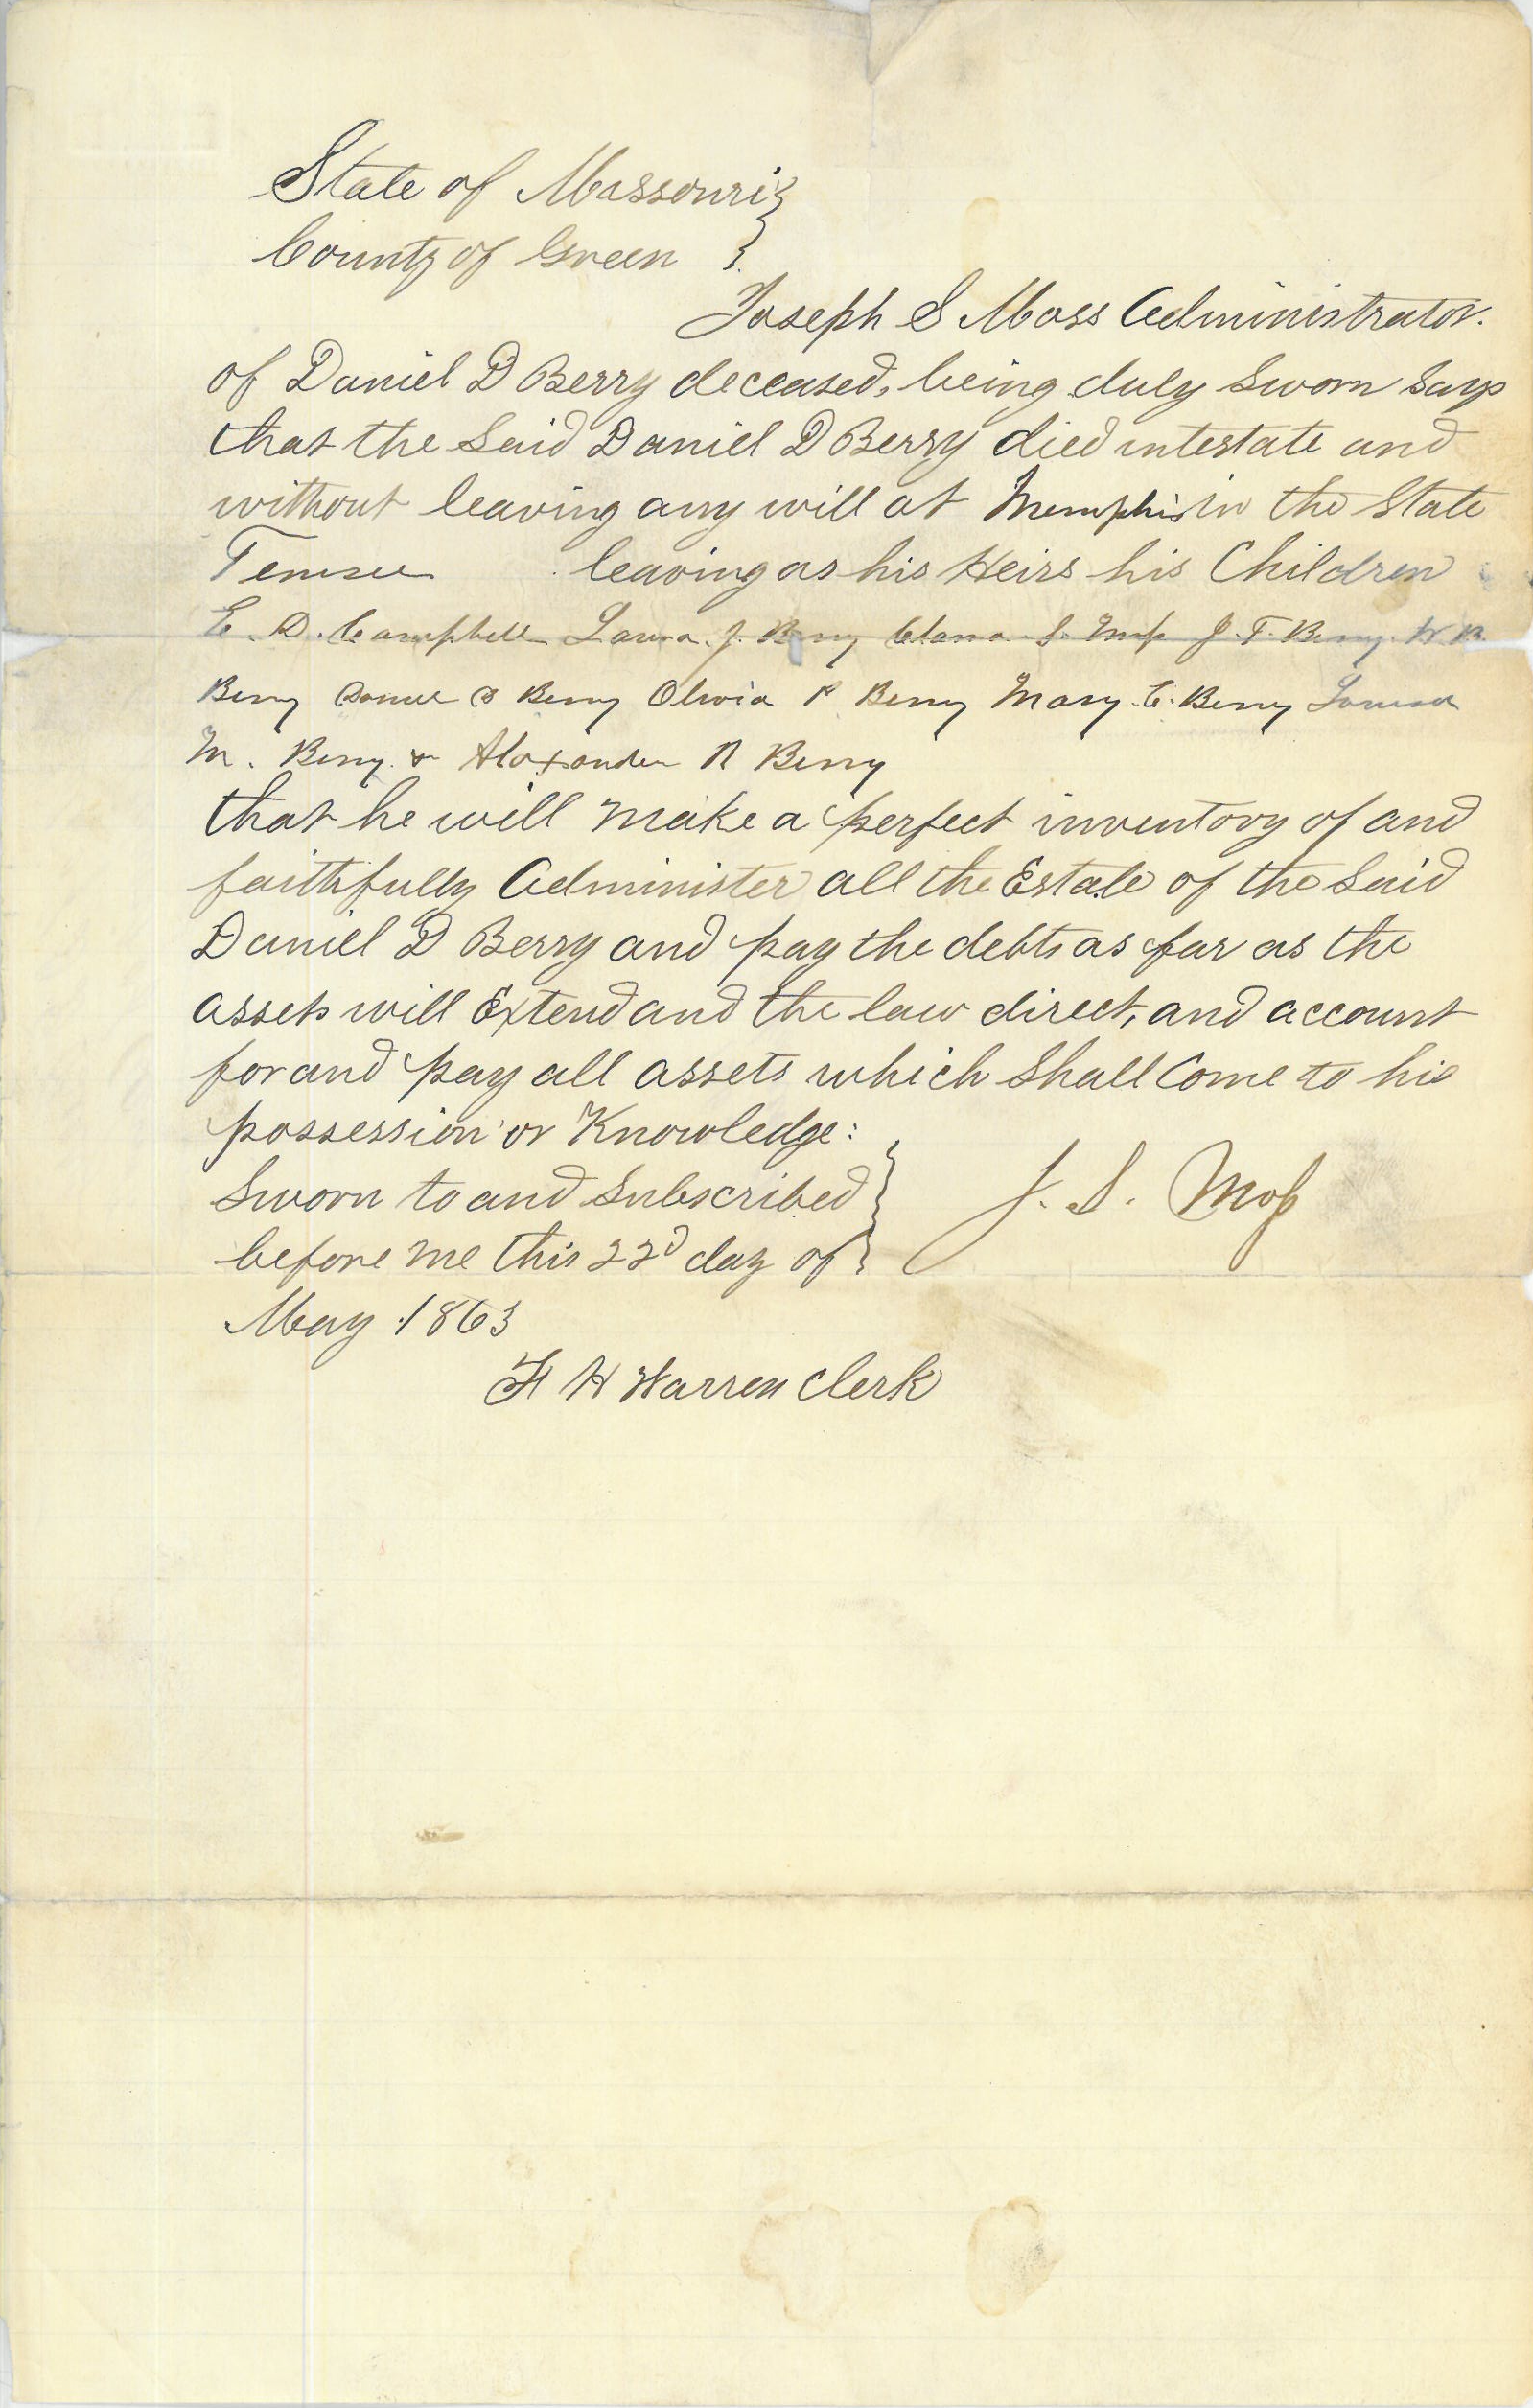 State of Missouri }
County of Green }
Joseph S Moss Administrator.
of Daniel D Berry deceased, being duly Sworn Says
that the Said Daniel D Berry died intestate and
without leaving any will at Memphis in the State
Tenisee leaving as his Heirs his Children
E. D. Campbell Laura. J. Berry Clara S. Moss J. T. Berry. W. B.
Berry Daniel D Berry Olivia P Berry Mary. E. Berry Louisa
M. Berry. & Alexander R Berry
that he will make a perfect inventory of and
faithfully Administer all the Estate of the Said
Daniel D Berry and pay the debts as far as the
assets will Extend and the law direct, and account
for and pay all assets which Shall Come to his
possession or Knowledge:
Sworn to and Subscribed } J. S. Moss
before me this 22d day of }
May 1863
H Warren Clerk